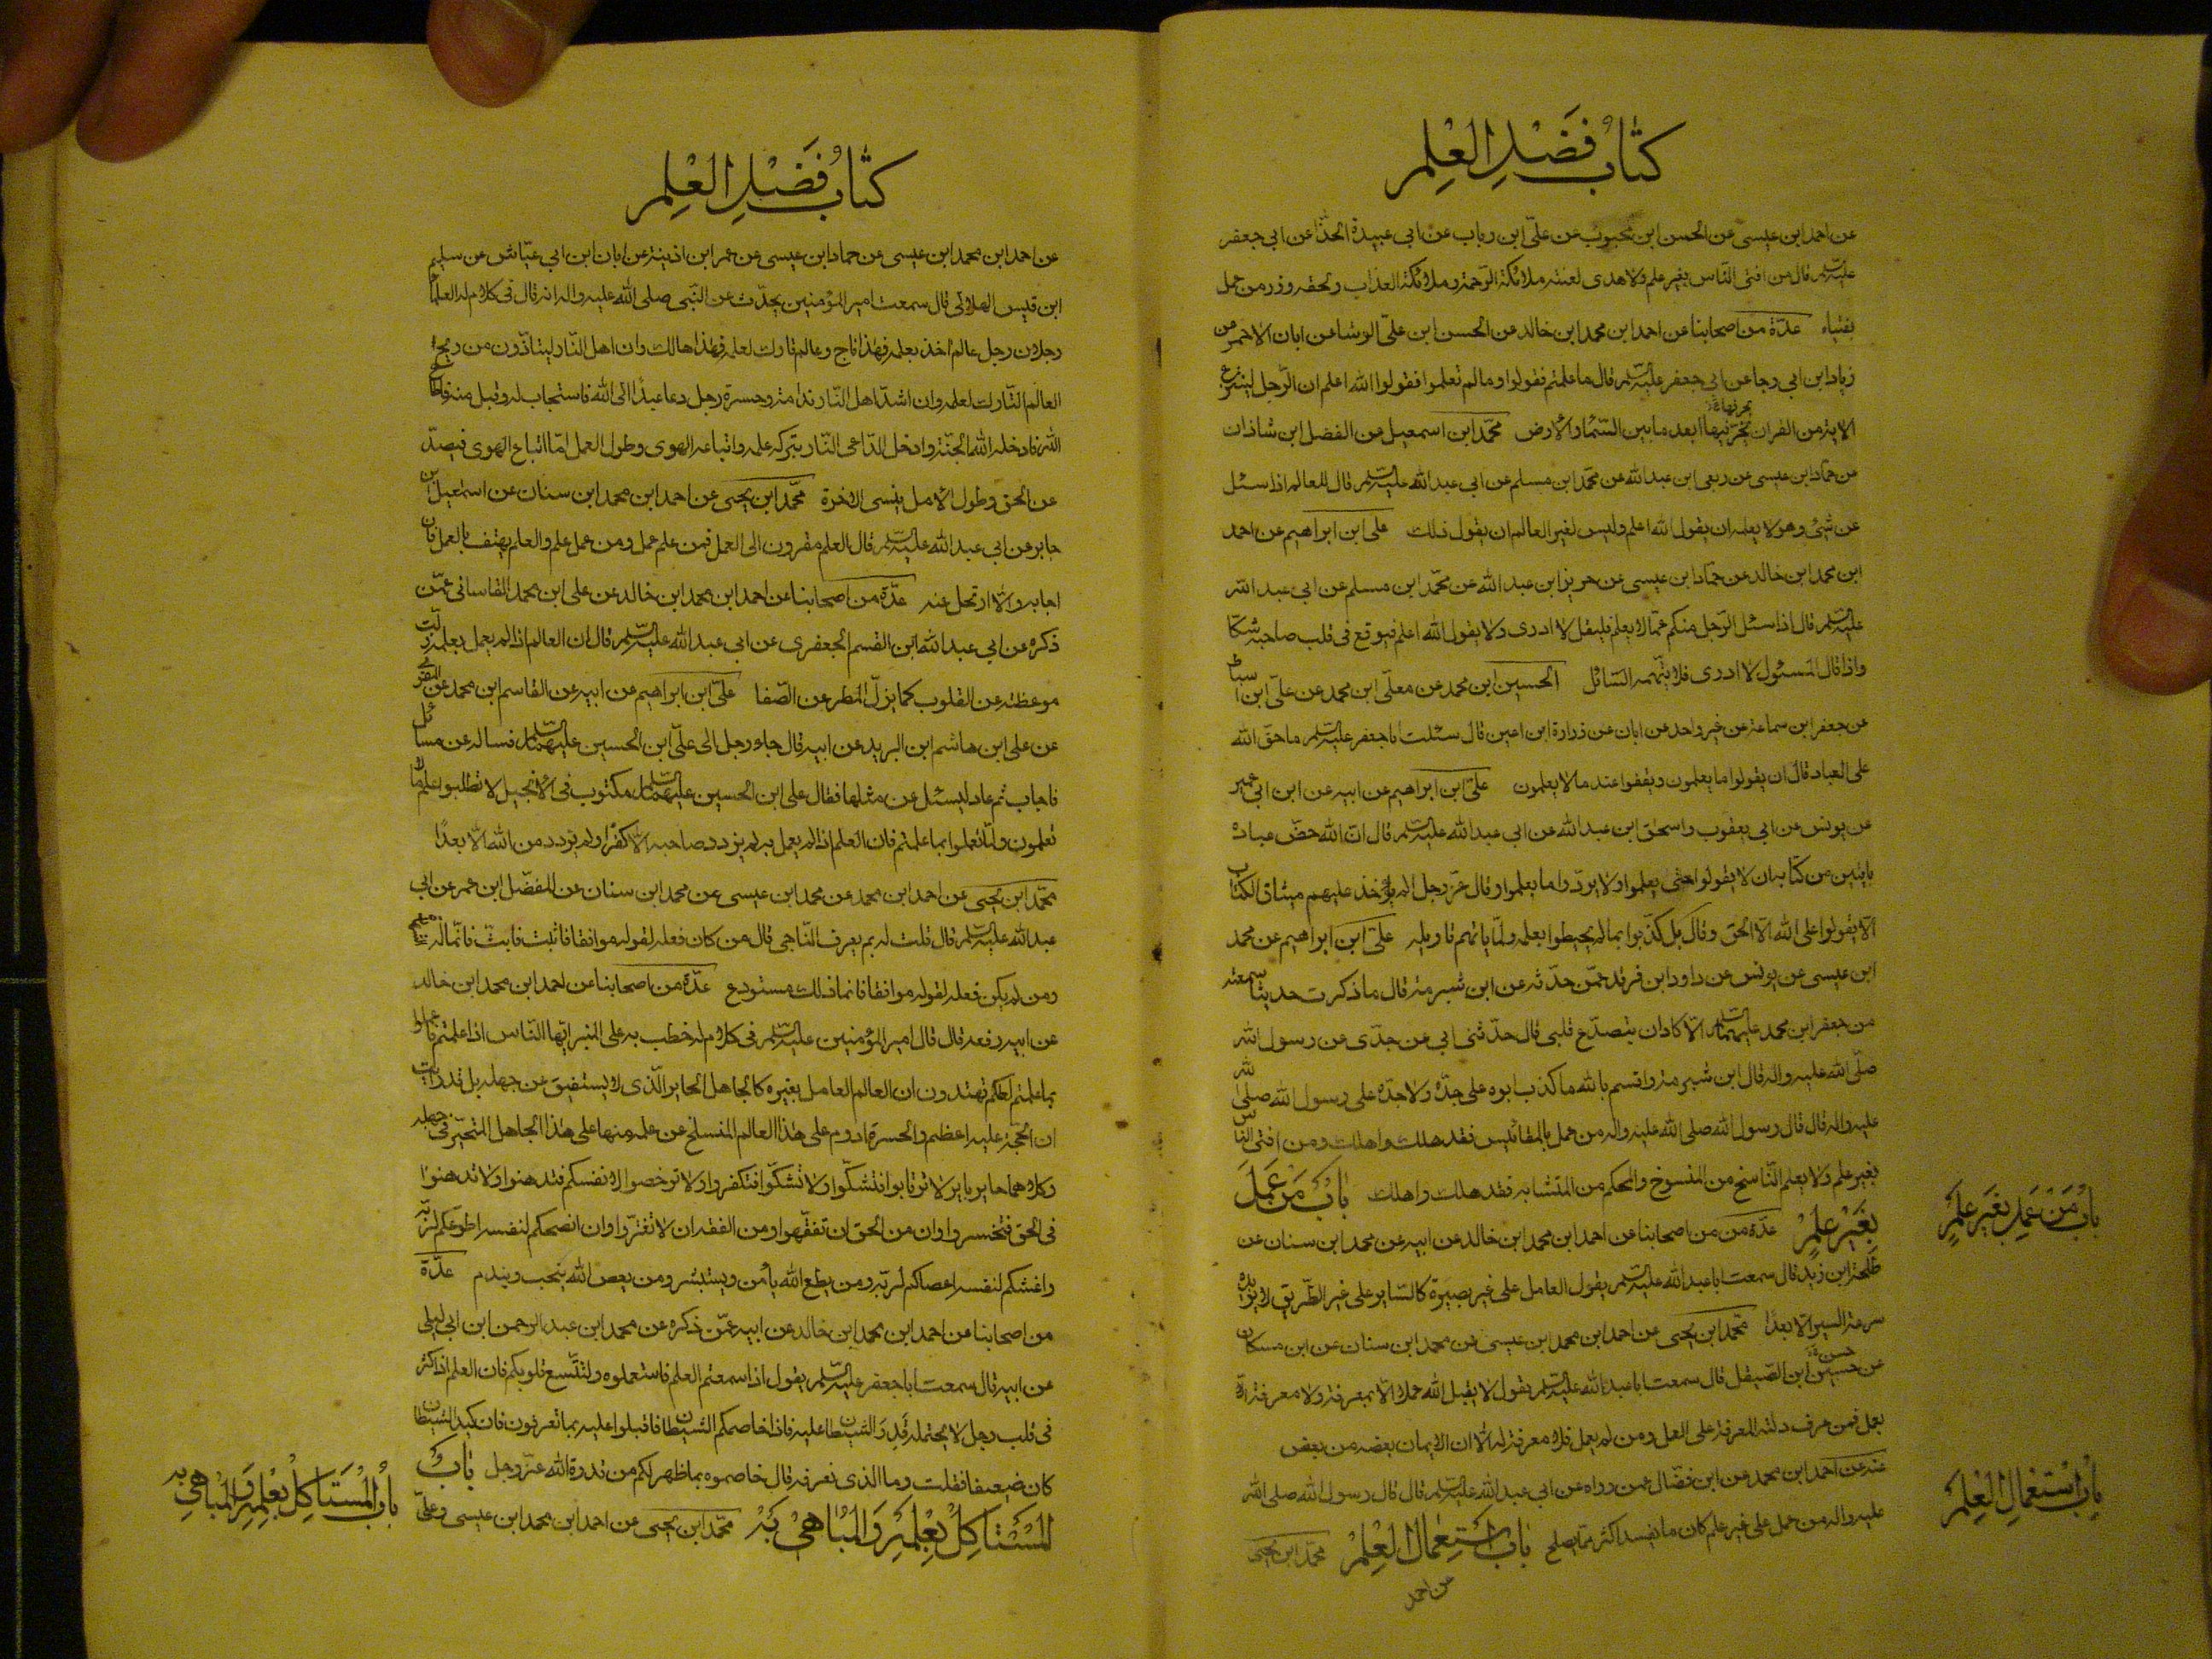 كتاب فضل العلم
عن احمد ابن عيسى عن الحسن ابن محبوب عن على ابن رياب عن ابى عبيدة الحذا عن ابى جعفر
عليه السلم قال من افتى الناس بغير علم ولا هدى لعنته ملائكة الرحمة وملائكة العذاب ولحقه وزر من عمل
بفتياه عدة من اصحابنا عن احمد ابن محمد ابن خالد عن الحسن ابن على الوشا عن ابان الاحمر عن
زياد ابن ابى رجا عن ابى جعفر عليه السلم قال ما علمتم فقولوا وما لم تعلموا فقولوا الله اعلم ان الرجل لينتزع
الاية من القران يخر فيها ابعد ما بين السماء والارض محمد ابن اسمعيل عن الفضل ابن شاذان
عن حماد ابن عيسى عن ربعى ابن عبد الله عن محمد ابن مسلم عن ابى عبد الله عليه السلم قال للعالم اذا سئل
عن شئ وهو لا يعلم ان يقول الله اعلم وليس لغير العالم ان يقول ذلك على ابن ابراهيم عن احمد
ابن محمد ابن خالد عن حماد ابن عيسى عن حريز ابن عبد الله عن محمد ابن مسلم عن ابى عبد الله
عليه السلم قال اذا سئل الرجل منكم عما لا يعلم فليقل لا ادرى ولا يقول الله اعلم فيوقع فى قلب صاحبه شكا
واذا قال المسئول لا ادرى فلا يتهمه السائل الحسين ابن محمد عن معلى ابن محمد عن على ابن اسباط
عن جعفر ابن سماعة عن غير واحد عن ابان عن زرارة ابن اعين قال سئلت ابا جعفر عليه السلم ما حق الله
على العباد قال ان يقولوا ما يعلمون ويقفوا عند ما لا يعلمون على ابن ابراهيم عن ابيه عن ابن ابى عمير
عن يونس عن ابى يعقوب واسحق ابن عبد الله عن ابى عبد الله عليه السلم قال ان الله خص عباده
بايتين من كتابه ان لا يقولوا حتى يعلموا ولا يردوا ما لم يعلموا وقال عز وجل الم يؤخذ عليهم ميثاق الكتاب
الا يقولوا على الله الا الحق وقال بل كذبوا بما لم يحيطوا بعلمه ولما ياتهم تاويله على ابن ابراهيم عن محمد
ابن عيسى عن يونس عن داود ابن فرقد عمن حدثه عن ابن شبرمة قال ما ذكرت حديثا سمعته
من جعفر ابن محمد عليهما السلم الا كاد ان يتصدع قلبى قال حدثنى ابى عن جدى عن رسول الله
صلى الله عليه واله قال ابن شبرمة واقسم بالله ما كذب ابوه على جده ولا جده على رسول الله صلى الله
عليه واله قال قال رسول الله صلى الله عليه واله من عمل بالمقائيس فقد هلك واهلك ومن افتى الناس
بغير علم ولا يعلم الناسخ من المنسوخ والمحكم من المتشابه فقد هلك واهلك باب من عمل
باب من عمل بغير علم
بغير علم عدة من من اصحابنا عن احمد ابن محمد ابن خالد عن ابيه عن محمد ابن سنان عن
طلحة ابن زيد قال سمعت ابا عبد الله عليه السلم يقول العامل على غير بصيرة كالساير على غير الطريق لا يزيده
سرعة السير الا بعدا محمد ابن يحيى عن احمد ابن محمد ابن عيسى عن محمد ابن سنان عن ابن مسكان
عن حسين ابن الصيقل قال سمعت ابا عبد الله عليه السلم يقول لا يقبل الله عملا الا بمعرفة ولا معرفة الا
بعمل فمن عرف دلته المعرفة على العمل ومن لم يعمل فلا معرفة له الا ان الايمان بعضه من بعض
عنه عن احمد ابن محمد عن ابن فضال عمن رواه عن ابى عبد الله عليه السلم قال قال رسول الله صلى الله
باب استعمال العلم
عليه واله من عمل على غير علم كان ما يفسد اكثر مما يصلح باب استعمال العلم محمد ابن يحيى
عن احمد
كتاب فضل العلم
عن احمد ابن محمد ابن عيسى عن حماد ابن عيسى عن عمر ابن اذينة عن ابان ابن ابى عياش عن سليم
ابن قيس الهلالى قال سمعت امير المؤمنين يحدث عن النبى صلى الله عليه واله انه قال فى كلام له العلماء
رجلان رجل عالم اخذ بعلمه فهذا ناج وعالم تارك لعلمه فهذا هالك وان اهل النار ليتاذون من ريح
العالم التارك لعلمه وان اشد اهل النار ندامة وحسرة رجل دعا عبدا الى الله فاستجاب له وقبل منه فاطاع
الله فادخله الله الجنة وادخل الداعى النار بتركه علمه واتباعه الهوى وطول العمل اما اتباع الهوى فيصد
عن الحق وطول الامل ينسى الاخرة محمد ابن يحيى عن احمد ابن محمد ابن سنان عن اسماعيل ابن
جابر عن ابى عبد الله عليه السلم قال العلم مقرون الى العمل فمن علم عمل ومن عمل علم والعلم يهتف بالعمل فان
اجابه والا ارتحل عنه عدة من اصحابنا عن احمد ابن محمد ابن خالد عن على ابن محمد القاسانى عمن
ذكره عن ابى عبد الله ابن القسم الجعفرى عن ابى عبد الله عليه السلم قال ان العالم اذا لم يعمل بعلمه زلت
موعظته عن القلوب كما يزل المطر عن الصفا على ابن ابراهيم عن ابيه عن القاسم ابن محمد عن المنقرى
عن على ابن هاشم ابن البريد عن ابيه قال جاء رجل الى على ابن الحسين عليهما السلم فساله عن مسائل
فاجاب ثم عاد ليسئل عن مثلها فقال على ابن الحسين عليهما السلم مكتوب فى الانجيل لا تطلبوا علم ما لا
تعلمون ولما تعملوا بما علمتم فان العلم اذا لم يعمل به لم يزدد صاحبه الا كفرا ولم يزدد من الله الا بعدا
محمد ابن يحيى عن احمد ابن محمد عن محمد ابن عيسى عن محمد ابن سنان عن المفضل ابن عمر عن ابى
عبد الله عليه السلم قال قلت له بم يعرف الناجى قال من كان فعله لقوله موافقا فاثبت فابث فانما له
ومن لم يكن فعله لقوله موافقا فانما ذلك مستودع عدة من اصحابنا عن احمد ابن محمد ابن خالد
عن ابيه رفعه قال قال امير المؤمنين عليه السلم فى كلام له خطب به على المنبر ايها الناس اذا علمتم فاعملوا
بما علمتم لعلكم تهتدون ان العالم العامل بغيره كالجاهل الحاير الذى لا يستفيق عن جهله بل قد رايت
ان الحجة عليه اعظم والحسرة ادوم على هذا العالم المنسلخ عن علمه منها على هذا الجاهل المتحير فى جهله
وكلاهما حاير باير لا ترتابوا فتشكوا ولا تشكوا فتكفروا ولا ترخصوا لانفسكم فتدهنوا ولا تدهنوا
فى الحق فتخسروا وان من الحق ان تفقهوا ومن الفقه ان لا تغتروا وان انصحكم لنفسه اطوعكم لربه
واغشكم لنفسه اعصاكم لربه ومن يطع الله يأمن ويستبشر ومن يعص الله يخب ويندم عدة
من اصحابنا عن احمد ابن محمد ابن خالد عن ابيه عمن ذكره عن محمد ابن عبد الرحمن ابن ابى ليلى
عن ابيه قال سمعت ابا جعفر عليه السلم يقول اذا سمعتم العلم فاستعملوه ولتتسع قلوبكم فان العلم اذا كثر
فى قلب رجل لا يحتمله قدر الشيطان عليه فاذا خاصمكم الشيطان فاقبلوا عليه بما تعرفون فان كيد الشيطان
كان ضعيفا فقلت وما الذى نعرفه قال خاصموه بما ظهر لكم من قدرة الله عز وجل باب
باب المستاكل بعلمه والمباهى به
المستاكل بعلمه والمباهى به محمد ابن يحيى عن احمد ابن محمد ابن عيسى وعلى